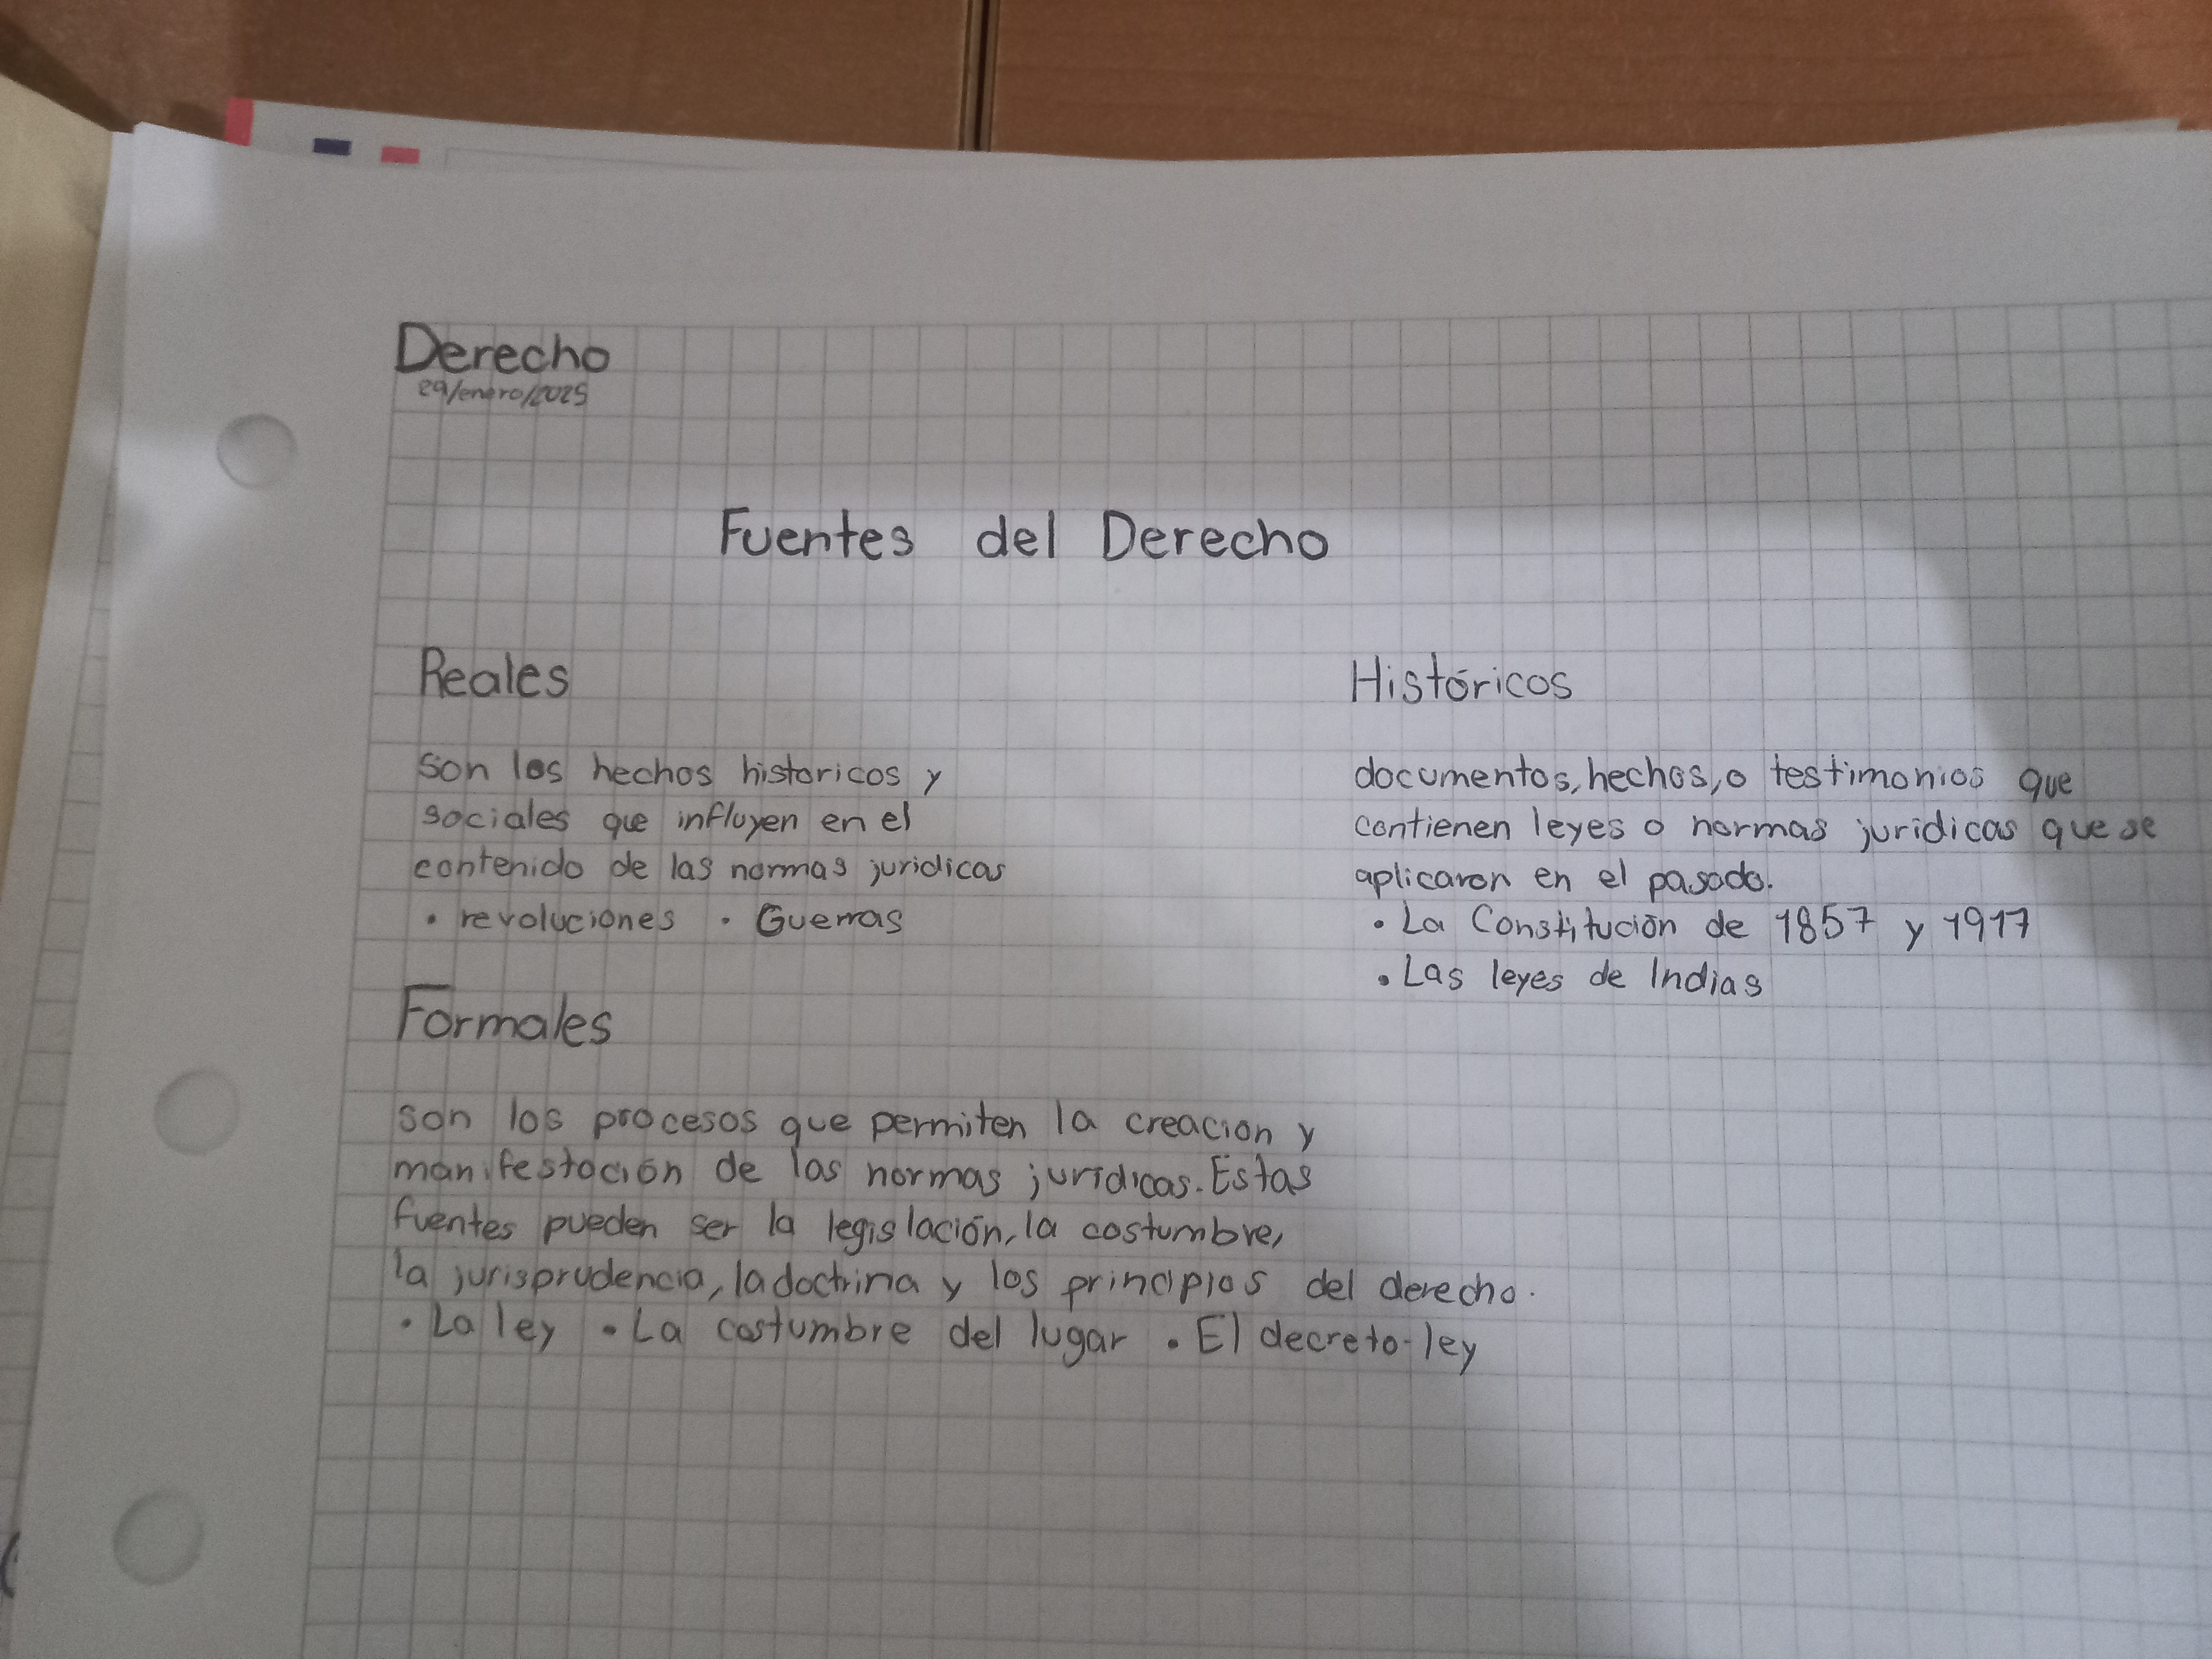 Derecho
29/enero/2025
Fuentes del Derecho
Reales
son los hechos historicos y
sociales que influyen en el
contenido de las normas juridicas
• revoluciones • Guerras
Históricos
documentos, hechos, o testimonios que
contienen leyes o normas juridicas que se
aplicaron en el pasado.
• La Constitución de 1857 y 1917
• Las leyes de Indias
Formales
son los procesos que permiten la creacion y
manifestación de las normas jurídicas. Estas
fuentes pueden ser la legislación, la costumbre,
la jurisprudencia, la doctrina y los principios del derecho.
• La ley • La costumbre del lugar • El decreto-ley